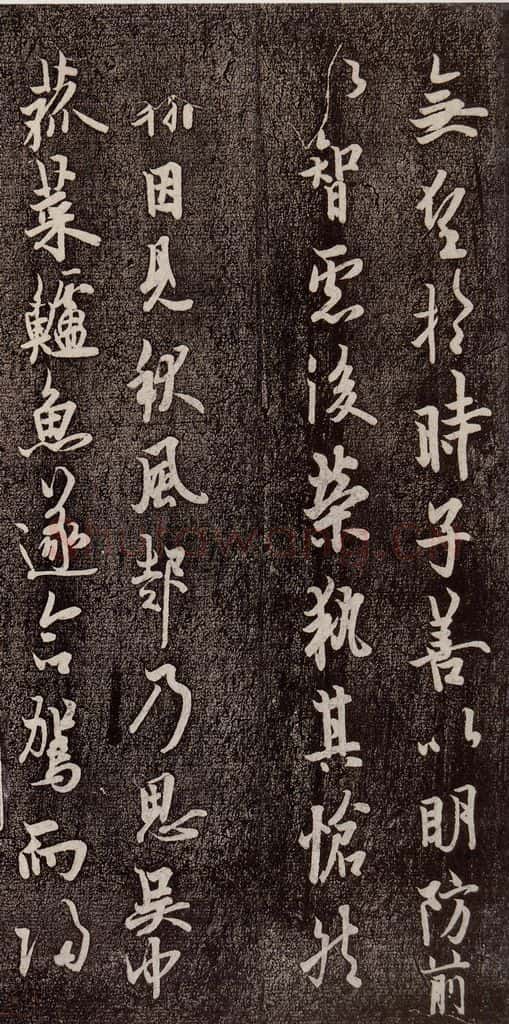 無望於時子善以明防前
以智慮後榮執其愴然
因見秋風起乃思吳中
菰菜鱸魚遂命駕而歸
shufawang.cn